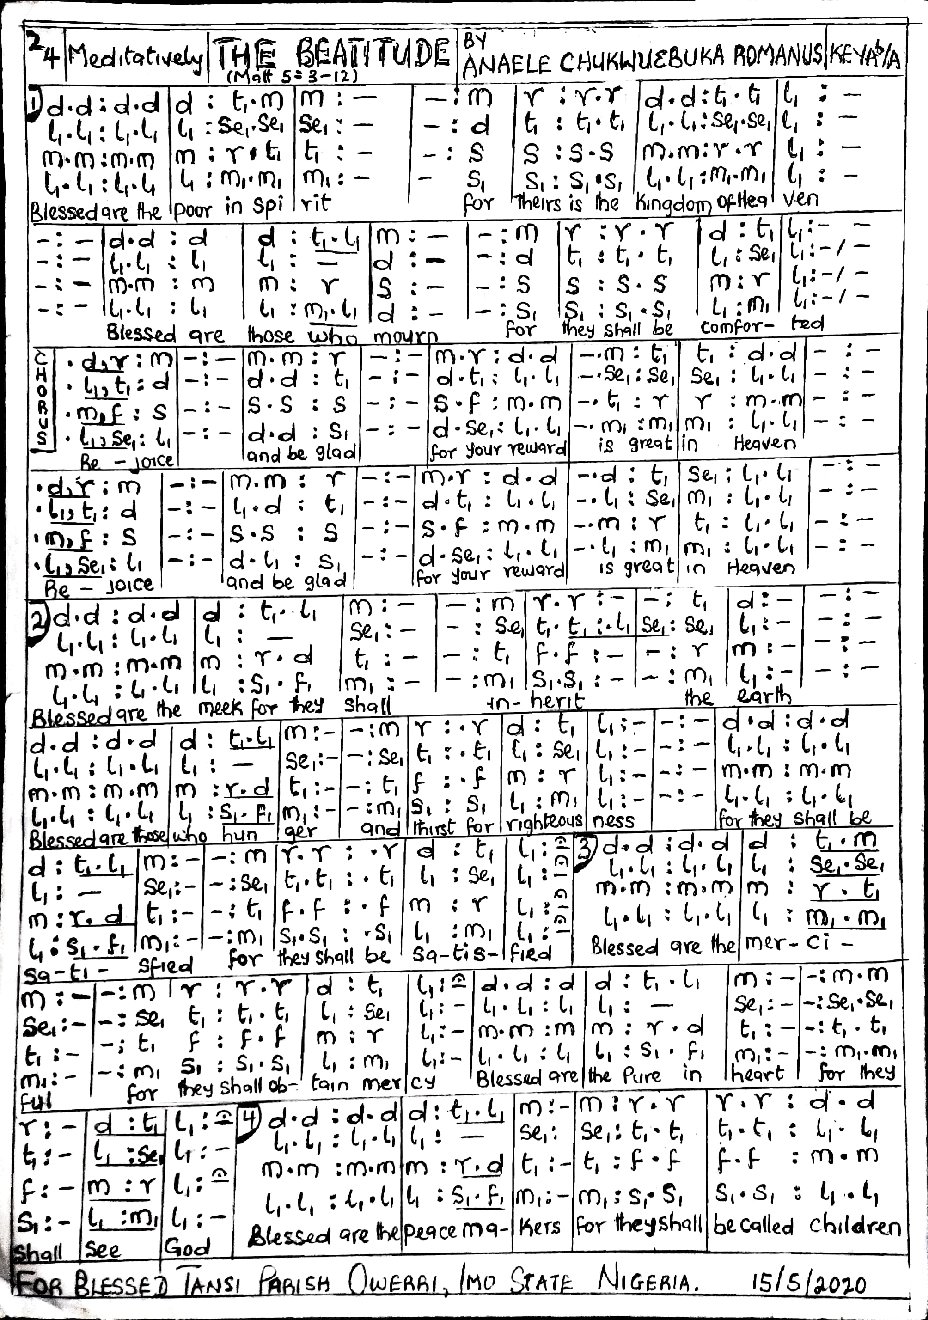 2/4 | Meditatively | THE BEATITUDE (Matt 5:3-12) | BY ANAELE CHUKWUEBUKA ROMANUS | KEY Ab/A
1) d.d:d.d | d : t₁.m | m : — | — : m | r : r.r | d.d:t₁.t₁ | l₁ : —
l₁.l₁:l₁.l₁ | l₁ : se₁.se₁ | se₁ : — | — : d | t₁ : t₁.t₁ | l₁.l₁:se₁.se₁ | l₁ : —
m.m:m.m | m : r.t₁ | t₁ : — | — : s | s : s.s | m.m:r.r | l₁ : —
l₁.l₁:l₁.l₁ | l₁ : m₁.m₁ | m₁ : — | — s₁ | s₁ : s₁.s₁ | l₁.l₁:m₁.m₁ | l₁ : —
Blessed are the poor in spi rit for theirs is the kingdom of Hea ven
— : — | d.d : d | d : t₁.l₁ | m : — | — : m | r : r.r | d : t₁ | l₁ : — / —
— : — | l₁.l₁ : l₁ | l₁ : — | d : — | — : d | t₁ : t₁.t₁ | l₁ : se₁ | l₁ : — / —
— : — | m.m : m | m : r | s : — | — : s | s : s.s | m : r | l₁ : — / —
— : — | l₁.l₁ : l₁ | l₁ : m₁.l₁ | d : — | — : s₁ | s₁ : s₁.s₁ | l₁ : m₁ | l₁ : — / —
Blessed are those who mourn for they shall be comfor- ted
CHORUS
. d,r : m | — : — | m.m : r | — : — | m.r : d.d | — .m : t₁ | t₁ : d.d | — : —
. l₁,t₁ : d | — : — | d.d : t₁ | — : — | d.t₁ : l₁.l₁ | — .se₁ : se₁ | se₁ : l₁.l₁ | — : —
. m,f : s | — : — | s.s : s | — : — | s.f : m.m | — .t₁ : r | r : m.m | — : —
. l₁,se₁ : l₁ | — : — | d.d : s₁ | — : — | d.se₁ : l₁.l₁ | — .m₁ : m₁ | m₁ : l₁.l₁ | — : —
Re - joice and be glad for your reward is great in Heaven
. d,r : m | — : — | m.m : r | — : — | m.r : d.d | — .d : t₁ | se₁ : l₁.l₁ | — : —
. l₁,t₁ : d | — : — | l₁.d : t₁ | — : — | d.t₁ : l₁.l₁ | — .l₁ : se₁ | m₁ : l₁.l₁ | — : —
. m,f : s | — : — | s.s : s | — : — | s.f : m.m | — .m : r | t₁ : l₁.l₁ | — : —
. l₁,se₁ : l₁ | — : — | d.l₁ : s₁ | — : — | d.se₁ : l₁.l₁ | — .l₁ : m₁ | m₁ : l₁.l₁ | — : —
Re - joice and be glad for your reward is great in Heaven
2) d.d : d.d | d : t₁.l₁ | m : — | — : m | r.r : — | — : t₁ | d : — | — : —
l₁.l₁ : l₁.l₁ | l₁ : — | se₁ : — | — : se₁ | t₁.t₁ : .l₁ | se₁ : se₁ | l₁ : — | — : —
m.m : m.m | m : r.d | t₁ : — | — : t₁ | f.f : — | — : r | m : — | — : —
l₁.l₁ : l₁.l₁ | l₁ : s₁.f₁ | m₁ : — | — : m₁ | s₁.s₁ : — | — : m₁ | l₁ : — | — : —
Blessed are the meek for they shall in- herit the earth
d.d : d.d | d : t₁.l₁ | m : — | — : m | r : .r | d : t₁ | l₁ : — | — : — | d.d : d.d
l₁.l₁ : l₁.l₁ | l₁ : — | se₁ : — | — : se₁ | t₁ : .t₁ | l₁ : se₁ | l₁ : — | — : — | l₁.l₁ : l₁.l₁
m.m : m.m | m : r.d | t₁ : — | — : t₁ | f : .f | m : r | l₁ : — | — : — | m.m : m.m
l₁.l₁ : l₁.l₁ | l₁ : s₁.f₁ | m₁ : — | — : m₁ | s₁ : s₁ | l₁ : m₁ | l₁ : — | — : — | l₁.l₁ : l₁.l₁
Blessed are those who hun ger and thirst for righteous ness for they shall be
d : t₁.l₁ | m : — | — : m | r.r : .r | d : t₁ | l₁ : 𝄐 | 3) d.d : d.d | d : t₁.m
l₁ : — | se₁ : — | — : se₁ | t₁.t₁ : .t₁ | l₁ : se₁ | l₁ : 𝄐 | l₁.l₁ : l₁.l₁ | l₁ : se₁.se₁
m : r.d | t₁ : — | — : t₁ | f.f : .f | m : r | l₁ : 𝄐 | m.m : m.m | m : r.t₁
l₁ : s₁.f₁ | m₁ : — | — : m₁ | s₁.s₁ : .s₁ | l₁ : m₁ | l₁ : 𝄐 | l₁.l₁ : l₁.l₁ | l₁ : m₁.m₁
Sa-ti- sfied for they shall be Sa-tis- fied Blessed are the mer-ci-
m : — | — : m | r : r.r | d : t₁ | l₁ : 𝄐 | d.d : d | d : t₁.l₁ | m : — | — : m.m
se₁ : — | — : se₁ | t₁ : t₁.t₁ | l₁ : se₁ | l₁ : — | l₁.l₁ : l₁ | l₁ : — | se₁ : — | — : se₁.se₁
t₁ : — | — : t₁ | f : f.f | m : r | l₁ : — | m.m : m | m : r.d | t₁ : — | — : t₁.t₁
m₁ : — | — : m₁ | s₁ : s₁.s₁ | l₁ : m₁ | l₁ : — | l₁.l₁ : l₁ | l₁ : s₁.f₁ | m₁ : — | — : m₁.m₁
full for they shall ob- tain mer cy Blessed are the Pure in heart for they
r : — | d : t₁ | l₁ : 𝄐 | 4) d.d : d.d | d : t₁.l₁ | m : — | m : r.r | r.r : d.d
t₁ : — | l₁ : se₁ | l₁ : — | l₁.l₁ : l₁.l₁ | l₁ : — | se₁ : | se₁ : t₁.t₁ | t₁.t₁ : l₁.l₁
f : — | m : r | l₁ : 𝄐 | m.m : m.m | m : r.d | t₁ : — | t₁ : f.f | f.f : m.m
s₁ : — | l₁ : m₁ | l₁ : — | l₁.l₁ : l₁.l₁ | l₁ : s₁.f₁ | m₁ : — | m₁ : s₁.s₁ | s₁.s₁ : l₁.l₁
Shall see God Blessed are the Peace ma- kers for they shall be called children
FOR BLESSED TANSI PARISH OWERRI, IMO STATE NIGERIA. 15/5/2020